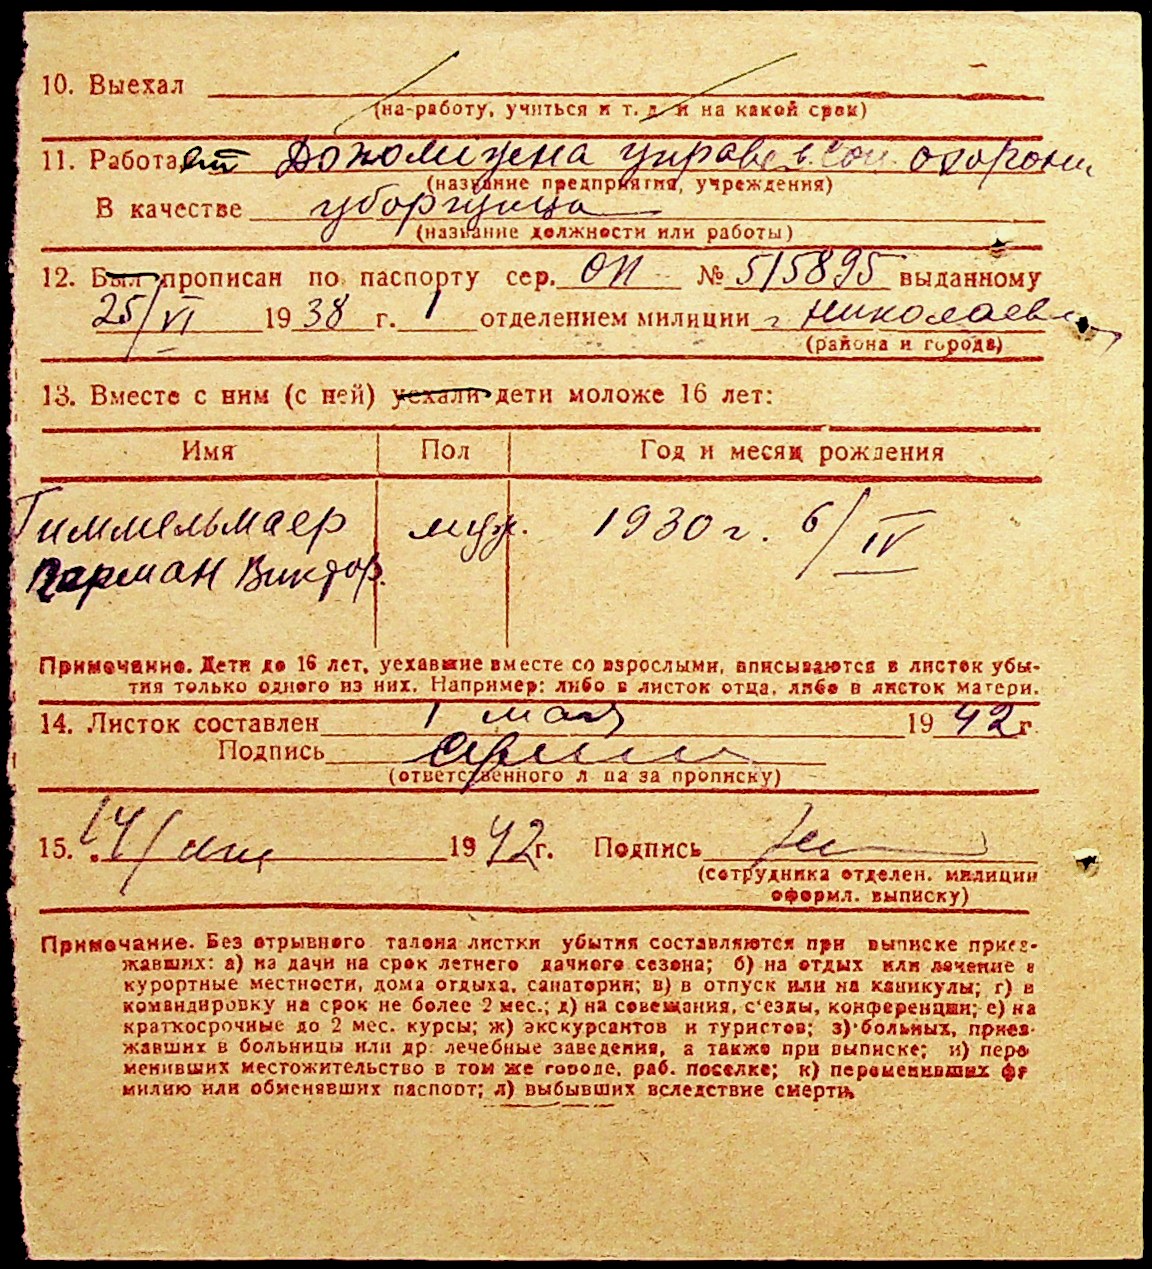 10. Выехал
(на работу, учиться и т. д. и на какой срок)
11. Работает управ. охороны
(название предприятия, учреждения)
В качестве уборщица
(название должности или работы)
12. Был прописан по паспорту сер. ОП № 515895 выданному
25/VI 1938 г. 1 отделением милиции г. Николаев
(района и города)
13. Вместе с ним (с ней) уехали дети моложе 16 лет:
Имя Пол Год и месяц рождения
Гиммельмаер муж. 1930 г. 6/IV
Герман Виктор.
Примечание. Дети до 16 лет, уехавшие вместе со взрослыми, вписываются в листок убы-
тия только одного из них. Например: либо в листок отца, либо в листок матери.
14. Листок составлен 1 мая 1942 г.
Подпись
(ответственного лица за прописку)
15. 14/ 1942 г. Подпись
(сотрудника отделен. милиции
оформл. выписку)
Примечание. Без отрывного талона листки убытия составляются при выписке приез-
жавших: а) на дачи на срок летнего дачного сезона; б) на отдых или лечение в
курортные местности, дома отдыха, санатории; в) в отпуск или на каникулы; г) в
командировку на срок не более 2 мес.; д) на совещания, с'езды, конференции; е) на
краткосрочные до 2 мес. курсы; ж) экскурсантов и туристов; з) больных, приез-
жавших в больницы или др. лечебные заведения, а также при выписке; и) пере
менивших местожительство в том же городе, раб. поселке; к) переменивших фа
милию или обменявших паспорт; л) выбывших вследствие смерти.